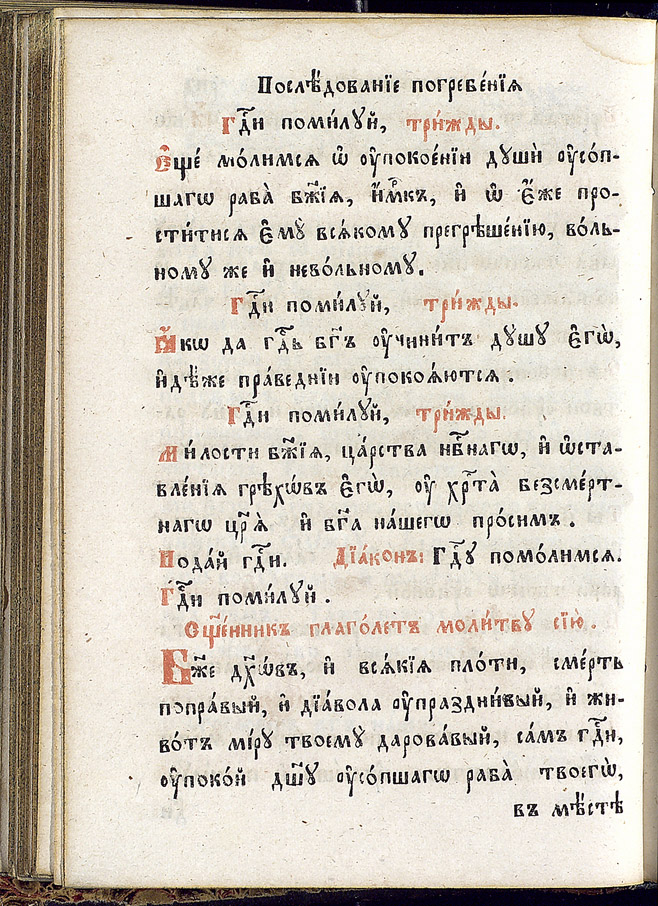 Послѣ́дованїе погребе́нїѧ
Гдⷭ҇и поми́лꙋй, три́жды.
Е҆щѐ мо́лимсѧ ѡ҆ ᲂу҆покое́нїи дꙋшѝ ᲂу҆со́п-
шагѡ раба̀ бж҃їѧ, и҆́м꙯къ, и҆ ѡ҆ є҆́же про-
сти́тисѧ є҆мꙋ̀ всѧ́комꙋ прегрѣше́нїю, во́ль-
номꙋ же и҆ нево́льномꙋ.
Гдⷭ҇и поми́лꙋй, три́жды.
Ꙗ҆́кѡ да гдⷭ҇ь бг҃ъ ᲂу҆чини́тъ дꙋшꙋ є҆гѡ̀,
и҆дѣ́же пра́веднїи ᲂу҆покоѧ́ютсѧ.
Гдⷭ҇и поми́лꙋй, три́жды.
Ми́лости бж҃їѧ, ца́рства нбⷭ҇нагѡ, и҆ ѡ҆ста-
вле́нїѧ грѣхѡ́въ є҆гѡ̀, ᲂу҆ хрⷭ҇та̀ безсме́рт-
нагѡ цр҃ѧ̀ и҆ бг҃а на́шегѡ про́симъ.
Пода́й гдⷭ҇и. Дїа́конъ: Гдⷭ҇ꙋ помо́лимсѧ.
Гдⷭ҇и поми́лꙋй.
Сщ҃е́нникъ глаго́летъ моли́твꙋ сїю̀.
Бж҃е дх҃ѡ́въ, и҆ всѧ́кїѧ пло́ти, сме́рть
попра́вый, и҆ дїа́вола ᲂу҆праздни́вый, и҆ жи-
во́тъ мі́рꙋ твоемꙋ̀ дарова́вый, са́мъ гдⷭ҇и,
ᲂу҆поко́й дш҃ꙋ ᲂу҆со́пшагѡ раба̀ твоегѡ̀,
въ мѣ́стѣ